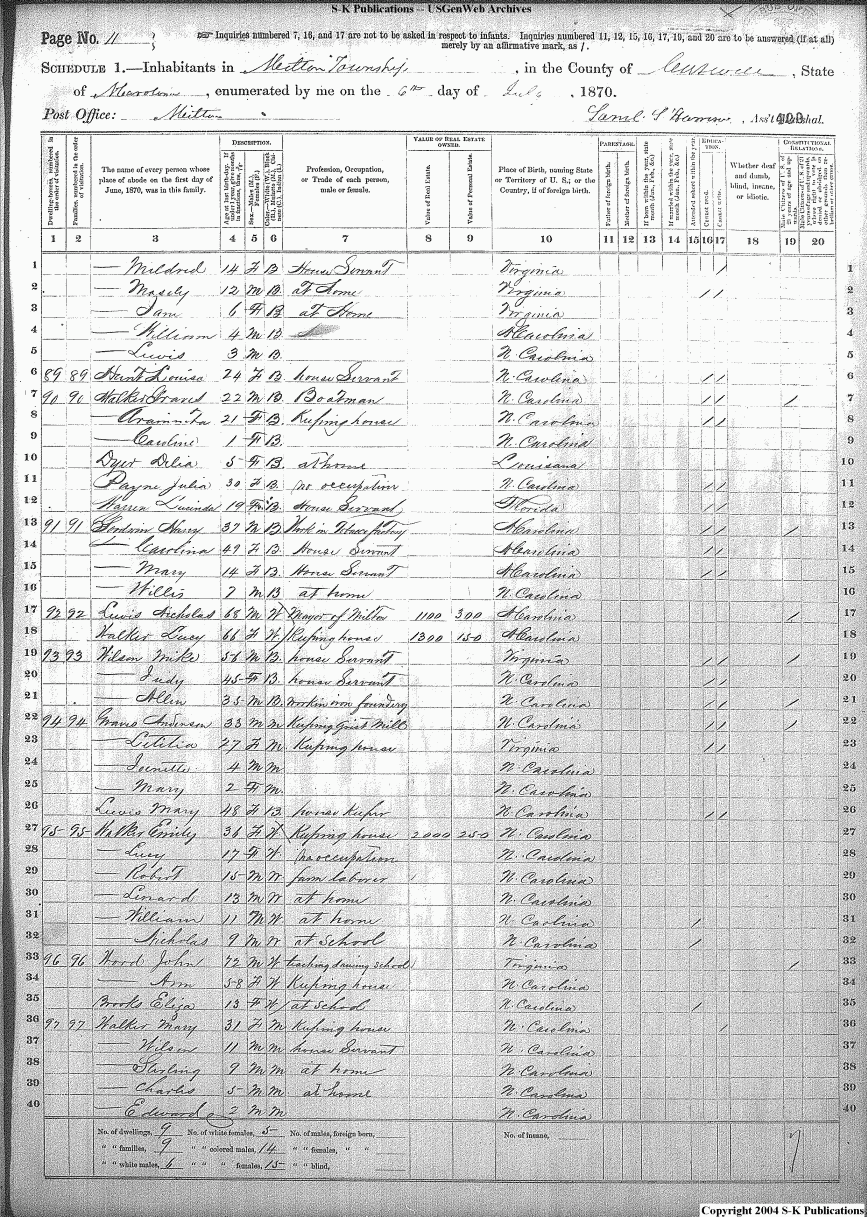 S-K Publications -- USGenWeb Archives
Page No. 11
Inquiries numbered 7, 16, and 17 are not to be asked in respect to infants. Inquiries numbered 11, 12, 15, 16, 17, 19, and 20 are to be answered (if at all)
merely by an affirmative mark, as /.
SCHEDULE 1.—Inhabitants in Milton Township, in the County of Caswell, State
of N Carolina, enumerated by me on the 6th day of July, 1870.
Post Office: Milton Ass't Marshal.
DESCRIPTION. VALUE OF REAL ESTATE OWNED. PARENTAGE. EDUCATION. CONSTITUTIONAL RELATIONS.
Dwelling-houses, numbered in the order of visitation. Families, numbered in the order of visitation. The name of every person whose place of abode on the first day of June, 1870, was in this family. Profession, Occupation, or Trade of each person, male or female. Value of Real Estate. Value of Personal Estate. Place of Birth, naming State or Territory of U. S.; or the Country, if of foreign birth. Father of foreign birth. Mother of foreign birth. Attended school within the year. Cannot read. Cannot write. Whether deaf and dumb, blind, insane, or idiotic.
1 2 3 4 5 6 7 8 9 10 11 12 13 14 15 16 17 18 19 20
1 — Mildred 14 F B House Servant Virginia / 1
2 — Mosely 12 M B at home Virginia / / 2
3 — Sam 6 B at Home Virginia 3
4 — William 4 M B N Carolina 4
5 — Lewis 3 M B. N. Carolina 5
6 89 89 Hunt Louisa 24 F B house Servant N. Carolina / / 6
7 90 90 Walker Graves 22 M B. Boatman N. Carolina / / / 7
8 — Araminta 21 F B. Keeping house N. Carolina / / 8
9 — Caroline 1 F B. N. Carolina 9
10 Dyer Delia 5 F B. at home Louisiana 10
11 Payne Julia 30 F B. no occupation N. Carolina / / 11
12 Warren Lucinda 19 F B House Servant Florida / / 12
13 91 91 Goodwin Harry 37 M B Work in Tobacco factory N Carolina / / / 13
14 — Carolina 49 F B House Servant N Carolina / / 14
15 — Mary 14 F B House Servant N Carolina / / 15
16 — Willis 7 M B at home N. Carolina 16
17 92 92 Lewis Nicholas 68 M W Mayor of Milton 1100 300 N Carolina / 17
18 Walker Lucy 66 F W Keeping house 1300 150 N Carolina 18
19 93 93 Wilson Mike 56 M B. house Servant Virginia / / / 19
20 — Judy 45 F B house Servant N. Carolina / / 20
21 — Allen 35 M B. work in iron foundery N Carolina / / / 21
22 94 94 Graves Anderson 33 M M Keeping Grist Mill N. Carolina / / / 22
23 — Letitia 27 F M. Keeping house Virginia / / 23
24 4 M M N. Carolina 24
25 — Mary 2 F M. N. Carolina 25
26 Lewis Mary 48 F B. house Keeper N. Carolina / / 26
27 95 95 Walker Emily 36 F W Keeping house 2000 250 N. Carolina 27
28 — Lucy 17 F W no occupation N. Carolina 28
29 — Robert 15 M W farm laborer N. Carolina 29
30 — Lenard 13 M W at home N. Carolina 30
31 — William 11 M W at home N. Carolina / 31
32 — Nicholas 9 M W at School N. Carolina / 32
33 96 96 Word John 72 M W Virginia / 33
34 — Ann 58 F W Keeping house N. Carolina 34
35 Brooks Eliza 13 F W at School N. Carolina / 35
36 97 97 Walker Mary 31 F M Keeping house N. Carolina / 36
37 — Wilson 11 M M house Servant N. Carolina 37
38 — Starling 9 M M at home N. Carolina 38
39 — Charles 5 M M at home N. Carolina 39
40 — Edward 2 M M N. Carolina 40
No. of dwellings, 9 No. of white females, 5 No. of males, foreign born, No. of insane,
" " families, 9 " " colored males, 14 " " females, " "
" " white males, 6 " " " females, 15 " " blind,
Copyright 2004 S-K Publications